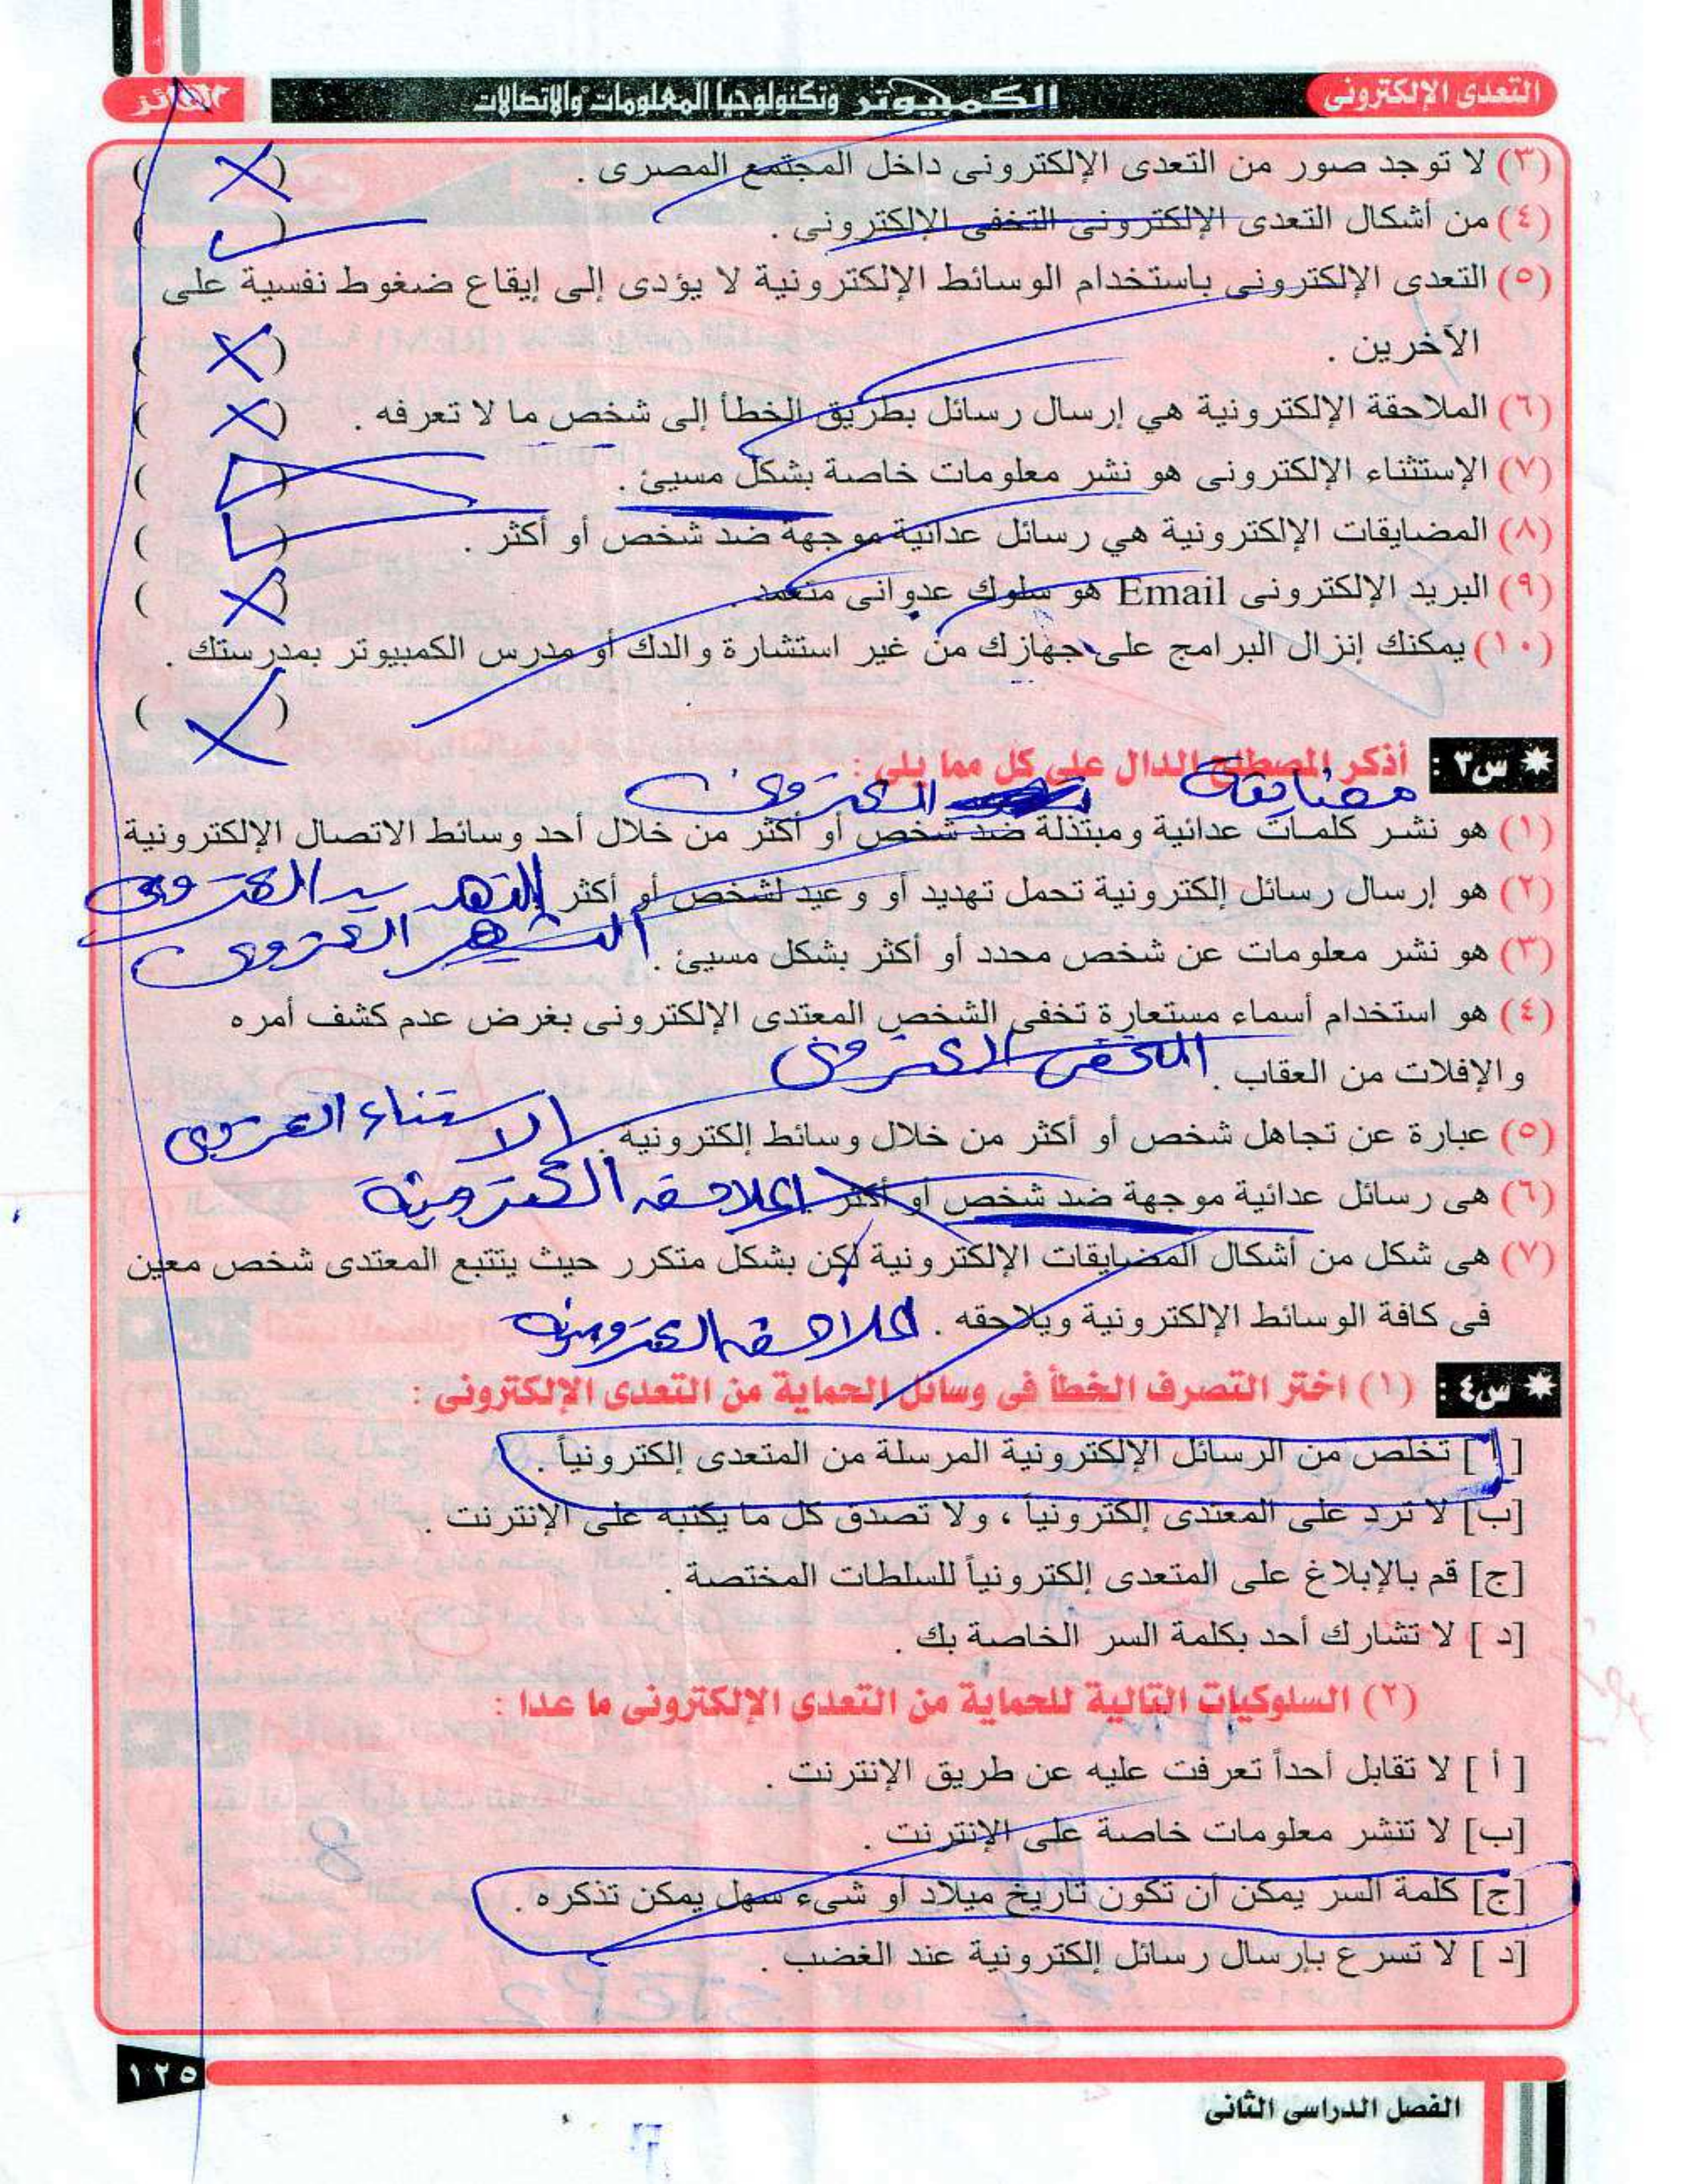 التعدى الإلكترونى
الكمبيوتر وتكنولوجيا المعلومات والاتصالات
الفائز
(٣) لا توجد صور من التعدى الإلكترونى داخل المجتمع المصرى . ( X )
(٤) من أشكال التعدى الإلكترونى التخفى الإلكترونى . ( ✓ )
(٥) التعدى الإلكترونى باستخدام الوسائط الإلكترونية لا يؤدى إلى إيقاع ضغوط نفسية على
الآخرين . ( X )
(٦) الملاحقة الإلكترونية هي إرسال رسائل بطريق الخطأ إلى شخص ما لا تعرفه . ( X )
(٧) الإستثناء الإلكترونى هو نشر معلومات خاصة بشكل مسيئ . ( )
(٨) المضايقات الإلكترونية هي رسائل عدائية موجهة ضد شخص أو أكثر . ( ✓ )
(٩) البريد الإلكترونى Email هو سلوك عدوانى متعمد . ( X )
(١٠) يمكنك إنزال البرامج على جهازك من غير استشارة والدك أو مدرس الكمبيوتر بمدرستك .
( X )
س٣ : أذكر المصطلح الدال على كل مما يلى :
مضايقة الكترونى
(١) هو نشر كلمات عدائية ومبتذلة ضد شخص أو أكثر من خلال أحد وسائط الاتصال الإلكترونية
(٢) هو إرسال رسائل إلكترونية تحمل تهديد أو وعيد لشخص أو أكثر التهديد الكترونى
(٣) هو نشر معلومات عن شخص محدد أو أكثر بشكل مسيئ . التشهير الكترونى
(٤) هو استخدام أسماء مستعارة تخفى الشخص المعتدى الإلكترونى بغرض عدم كشف أمره
والإفلات من العقاب . التخفى الكترونى
(٥) عبارة عن تجاهل شخص أو أكثر من خلال وسائط إلكترونية . الاستثناء الكترونى
(٦) هى رسائل عدائية موجهة ضد شخص أو أكثر الملاحقه الكترونية
(٧) هى شكل من أشكال المضايقات الإلكترونية لكن بشكل متكرر حيث يتتبع المعتدى شخص معين
فى كافة الوسائط الإلكترونية ويلاحقه . الملاحقه الكترونيه
س٤ : (١) اختر التصرف الخطأ فى وسائل الحماية من التعدى الإلكترونى :
[أ] تخلص من الرسائل الإلكترونية المرسلة من المتعدى إلكترونياً .
[ب] لا ترد على المعتدى إلكترونياً ، ولا تصدق كل ما يكتبه على الإنترنت .
[ج] قم بالإبلاغ على المتعدى إلكترونياً للسلطات المختصة .
[د] لا تشارك أحد بكلمة السر الخاصة بك .
(٢) السلوكيات التالية للحماية من التعدى الإلكترونى ما عدا :
[أ] لا تقابل أحداً تعرفت عليه عن طريق الإنترنت .
[ب] لا تنشر معلومات خاصة على الإنترنت .
[ج] كلمة السر يمكن أن تكون تاريخ ميلاد أو شىء سهل يمكن تذكره .
[د] لا تسرع بإرسال رسائل إلكترونية عند الغضب .
١٢٥
الفصل الدراسى الثانى